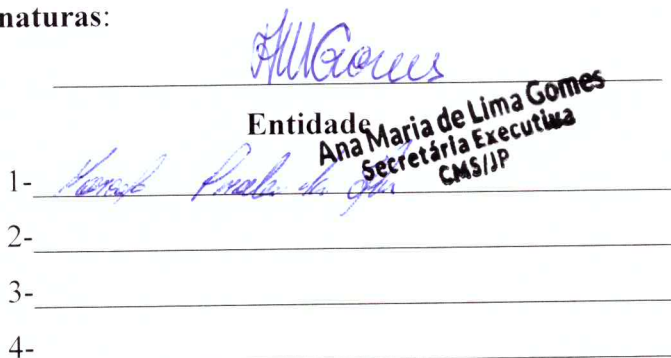 naturas:
AMGomes
Entidade
Ana Maria de Lima Gomes
Secretária Executiva
CMS/JP
1-
2-
3-
4-